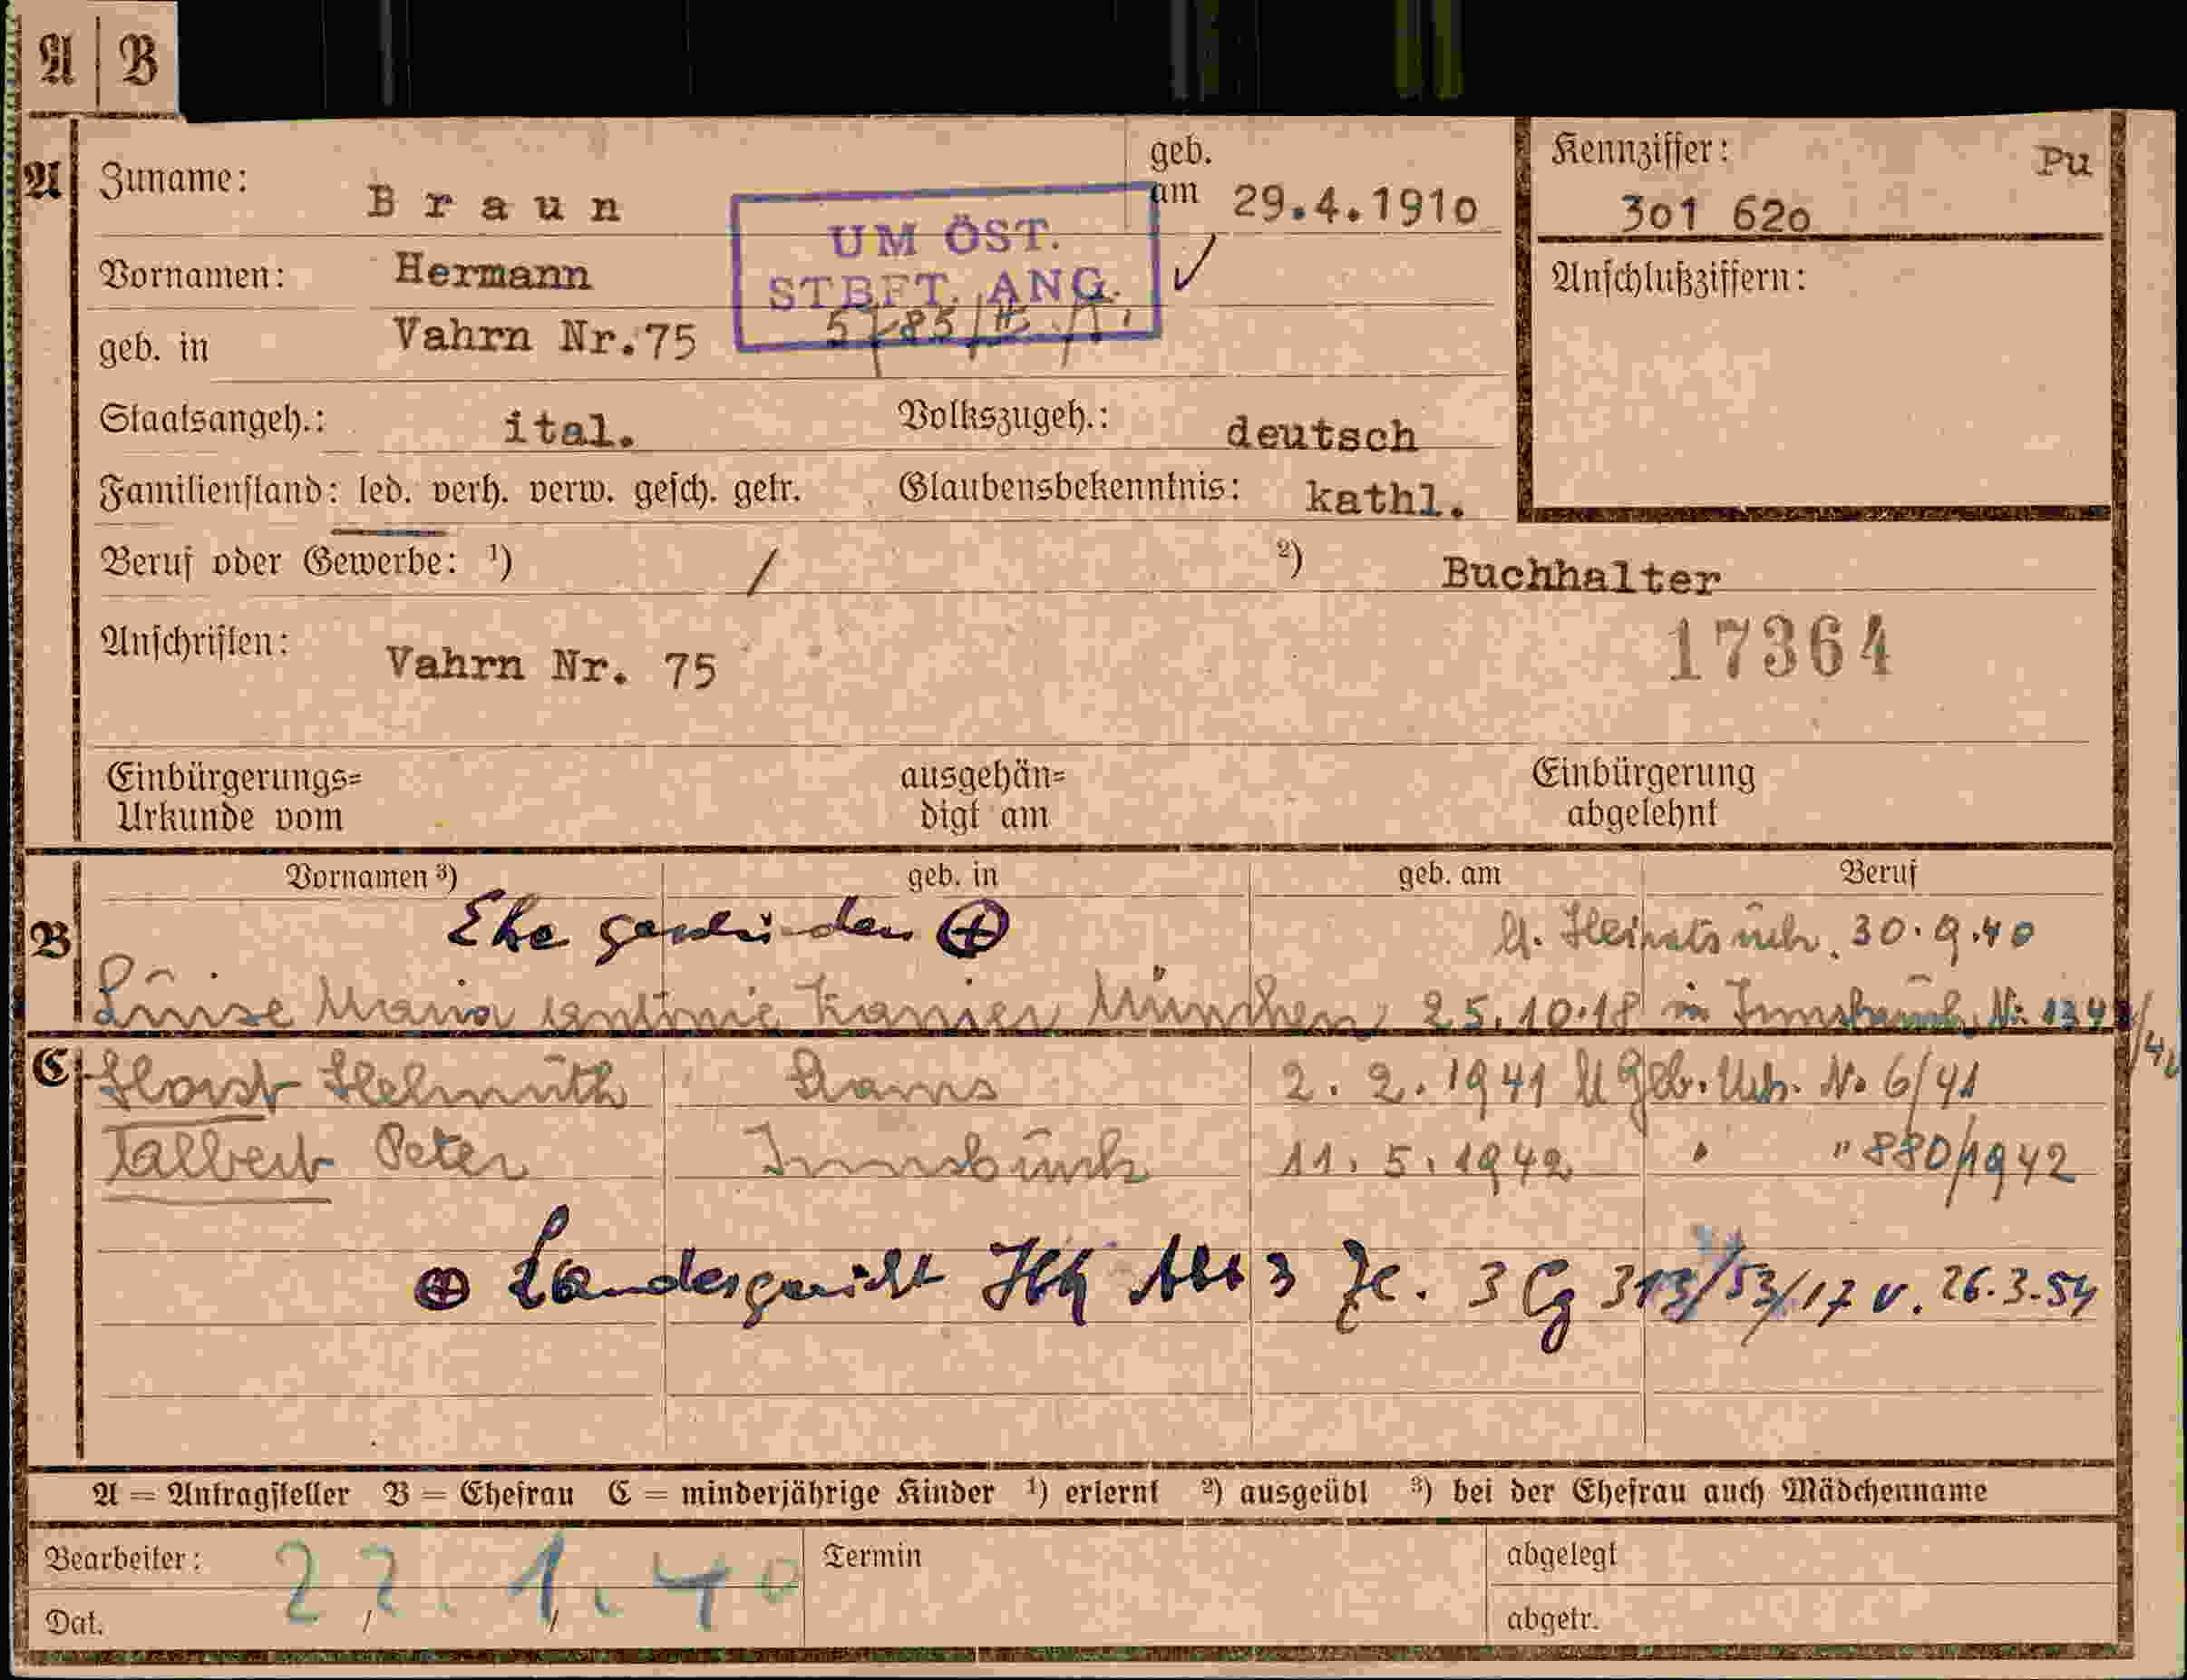 A | B
A
Zuname: Braun
geb. am 29.4.1910
Kennziffer: Pu
301 620
UM ÖST.
STBFT. ANG.
Vornamen: Hermann
Anschlußziffern:
geb. in Vahrn Nr.75
Staatsangeh.: ital. Volkszugeh.: deutsch
Familienstand: led. verh. verw. gesch. getr. Glaubensbekenntnis: kathl.
Beruf oder Gewerbe: ¹) / ²) Buchhalter
Anschriften: Vahrn Nr. 75
17364
Einbürgerungs= ausgehän= Einbürgerung
Urkunde vom digt am abgelehnt
Vornamen ³) geb. in geb. am Beruf
B
Ehe geschieden ⊕ 30.9.40
Luise Maria München 25.10.18 in Innsbruck
C
Horst Helmuth Stams 2. 2. 1941 Geb. Urk. No 6/41
Peter Innsbruck 11. 5. 1942 " " 880/1942
⊕ Landesgericht Abt 3 3 Cg 313/53/17 v. 26.3.54
A = Antragsteller B = Ehefrau C = minderjährige Kinder ¹) erlernt ²) ausgeübt ³) bei der Ehefrau auch Mädchenname
Bearbeiter: Termin abgelegt
22.1.40
Dat. abgetr.